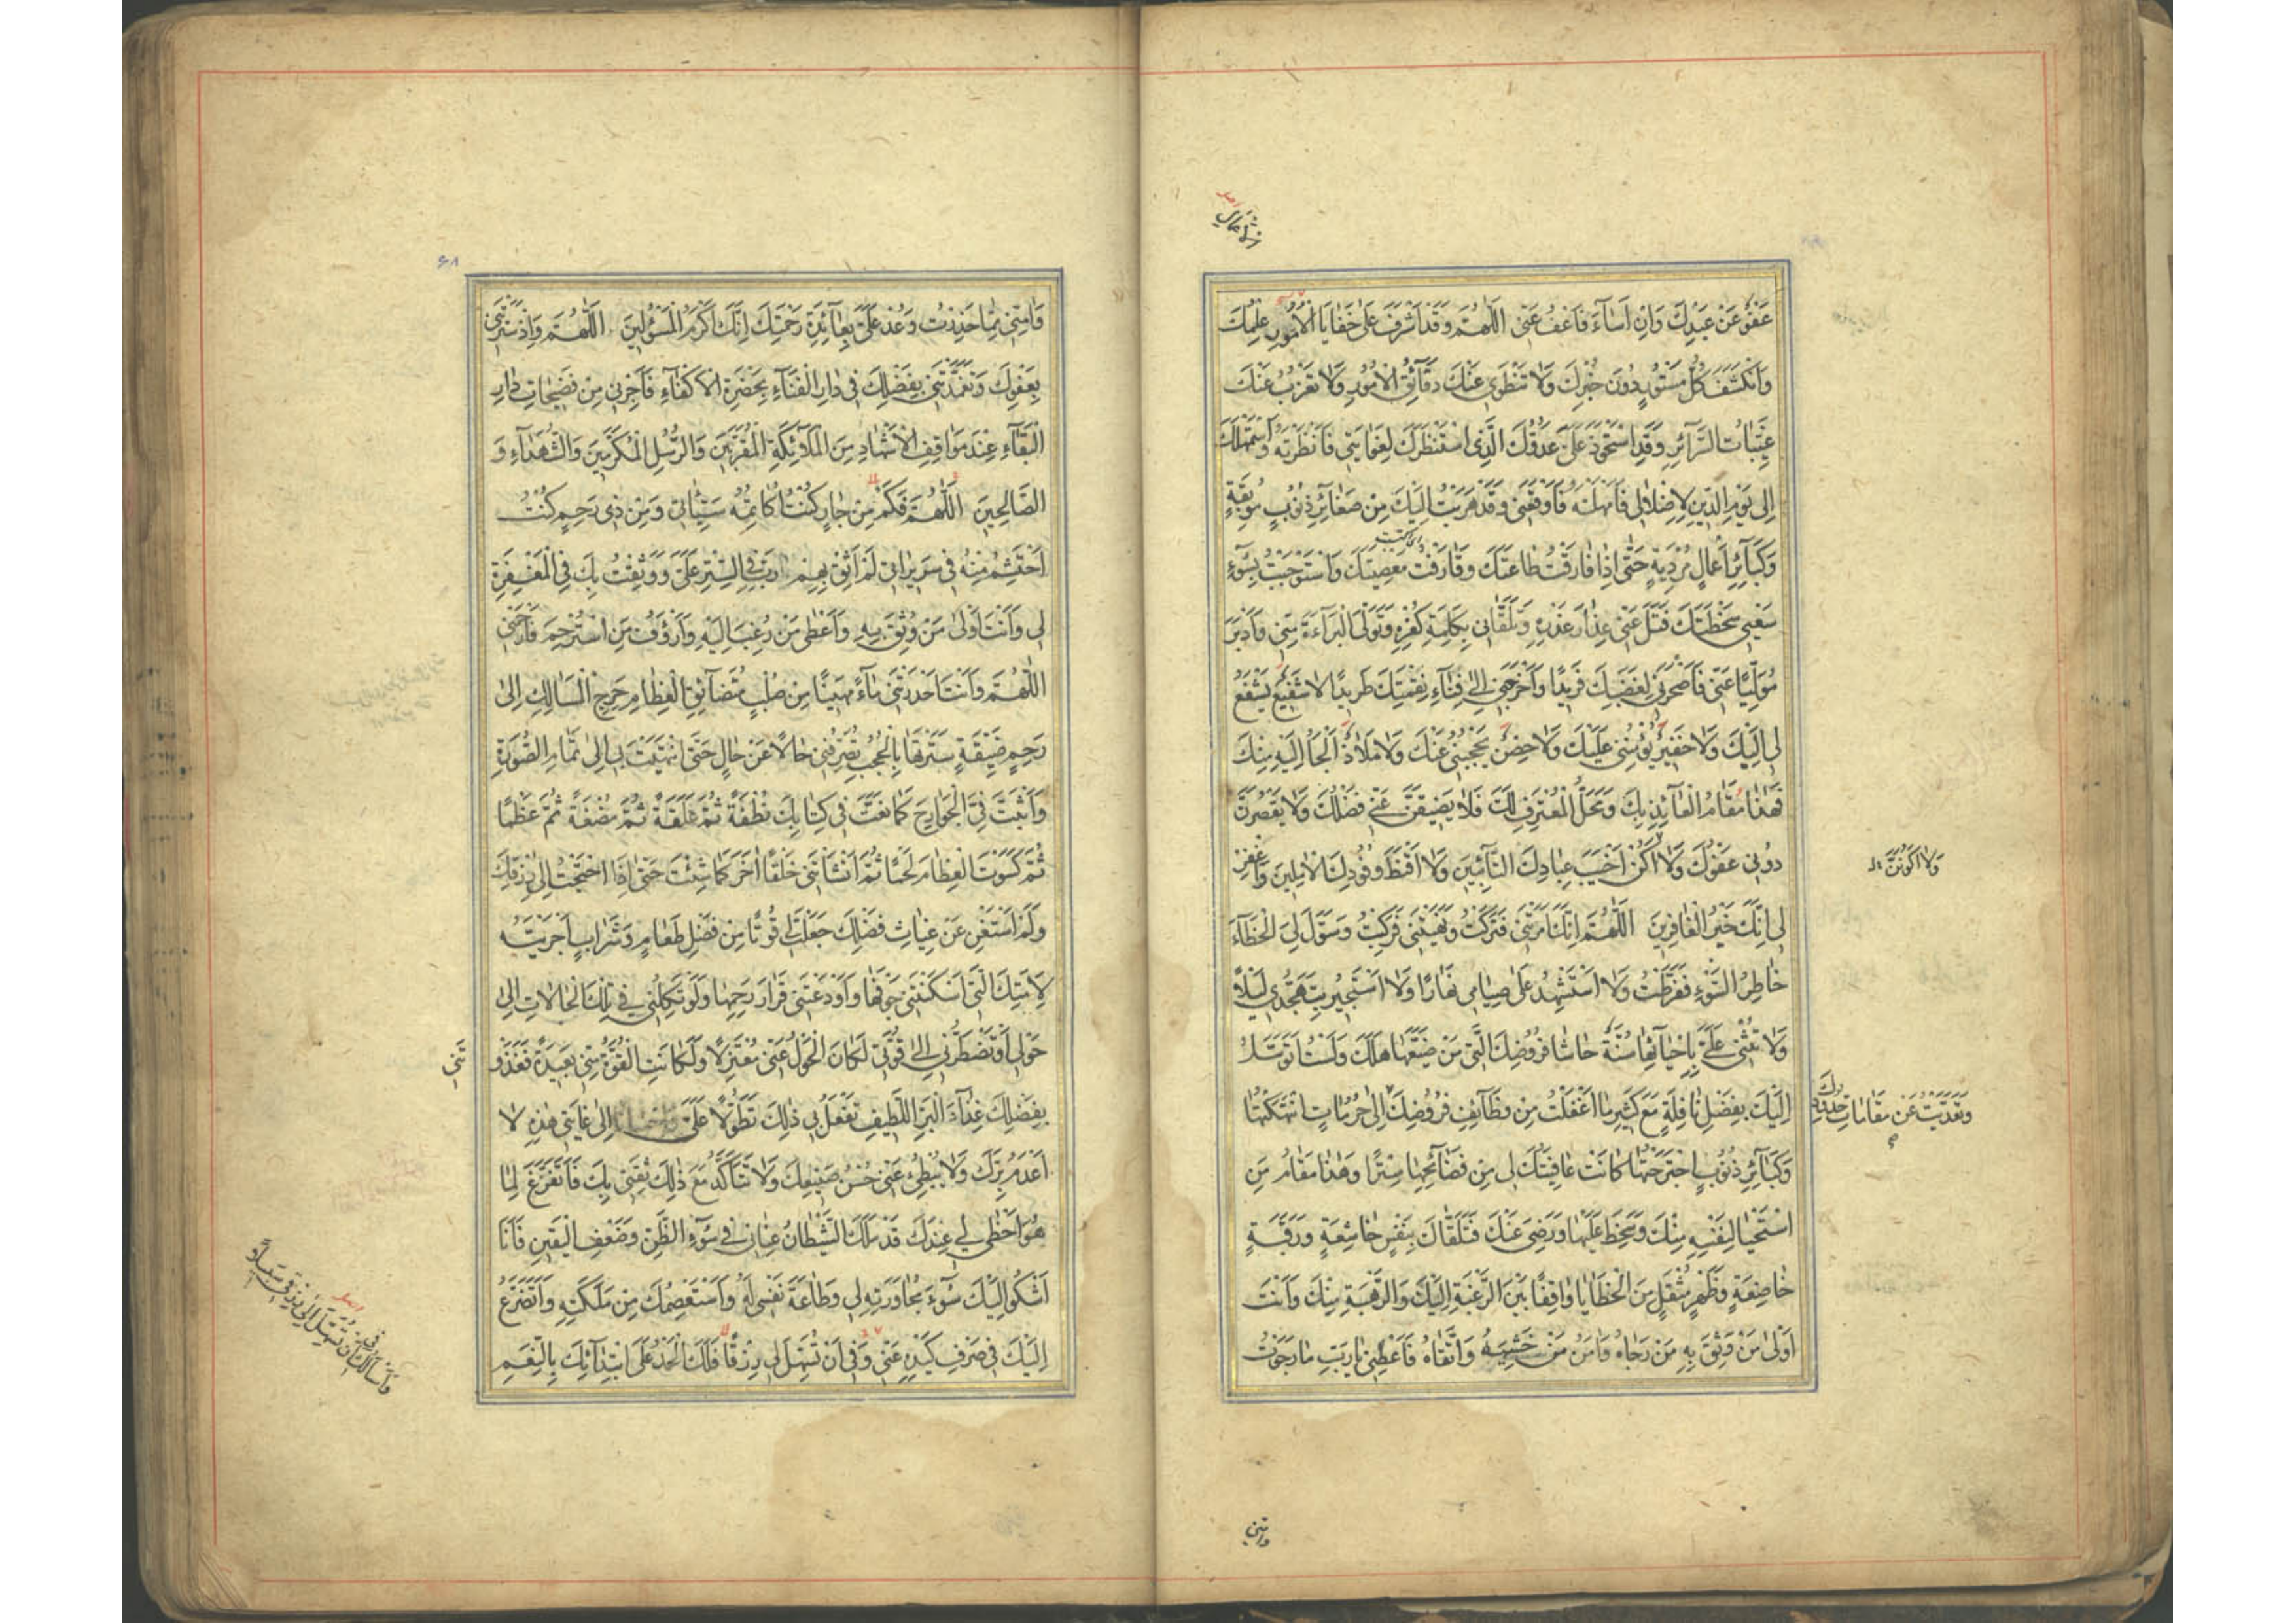 عَفْوُ عَنْ عَبْدِكَ وَاِنْ اَسَاءَ فَاعْفُ عَنّي اَللّهُمَّ وَقَدْ اَشْرَفَ عَلى خَفَايَا الْاُمُورِ عِلْمُكَ
وَانْكَشَفَ كُلُّ مَسْتُورٍ دُونَ خُبْرِكَ وَلَا تَنْطَوي عَنْكَ دَقَآئِقُ الْاُمُورِ وَلَا تَعْزُبُ عَنْكَ
غَيِّبَاتُ السَّرَآئِرِ وَقَدِ اسْتَحْوَذَ عَلَيَّ عَدُوُّكَ الَّذِي اسْتَنْظَرَكَ لِغَوَايَتي فَاَنْظَرْتَهُ وَاسْتَمْهَلَكَ
اِلى يَوْمِ الدّينِ لِاِضْلَالي فَاَمْهَلْتَهُ فَاَوْقَعَني وَقَدْ هَرَبْتُ اِلَيْكَ مِنْ صَغَآئِرِ ذُنُوبٍ مُوبِقَةٍ
وَكَبَآئِرِ اَعْمَالٍ مُرْدِيَةٍ حَتّى اِذَا فَارَقْتُ طَاعَتَكَ وَقَارَفْتُ مَعْصِيَتَكَ وَاسْتَوْجَبْتُ بِسُوءِ
سَعْيي سَخْطَتَكَ فَتَلَ عَنّي عِذَارَ غَدْرِهِ وَتَلَقَّاني بِكَلِمَةِ كُفْرِهِ وَتَوَلَّى الْبَرَاءَةَ مِنّي وَاَدْبَرَ
مُوَلِّيًا عَنّي فَاَصْحَرَني لِغَضَبِكَ فَرِيدًا وَاَخْرَجَني اِلى فِنَآءِ نِقْمَتِكَ طَرِيدًا لَا شَفِيعٌ يَشْفَعُ
لي اِلَيْكَ وَلَا خَفيرٌ يُؤْمِنُني عَلَيْكَ وَلَا حِصْنٌ يَحْجُبُني عَنْكَ وَلَا مَلَاذٌ اَلْجَأُ اِلَيْهِ مِنْكَ
فَهذَا مَقَامُ الْعَآئِذِ بِكَ وَمَحَلُّ الْمُعْتَرِفِ لَكَ فَلَا يَضيقَنَّ عَنّي فَضْلُكَ وَلَا يَقْصُرَنَّ
دُوني عَفْوُكَ وَلَا اَكُنْ اَخْيَبَ عِبَادِكَ التَّآئِبينَ وَلَا اَقْنَطَ وُفُودِكَ الْاٰمِلينَ وَاغْفِرْ
لي اِنَّكَ خَيْرُ الْغَافِرينَ اَللّهُمَّ اِنَّكَ اَمَرْتَني فَتَرَكْتُ وَنَهَيْتَني فَرَكِبْتُ وَسَوَّلَ لِيَ الْخَطَآءَ
خَاطِرُ السُّوءِ فَفَرَّطْتُ وَلَا اَسْتَشْهِدُ عَلى صِيَامي نَهَارًا وَلَا اَسْتَجيرُ بِتَهَجُّدي لَيْلًا
وَلَا تُثْني عَلَيَّ بِاِحْيَآئِهَا سُنَّةٌ حَاشَا فُرُوضِكَ الَّتي مَنْ ضَيَّعَهَا هَلَكَ وَلَسْتُ اَتَوَسَّلُ
اِلَيْكَ بِفَضْلِ نَافِلَةٍ مَعَ كَثيرِ مَا اَغْفَلْتُ مِنْ وَظَآئِفِ فُرُوضِكَ اِلى حُرُمَاتٍ انْتَهَكْتُهَا
وَكَبَآئِرِ ذُنُوبٍ اجْتَرَحْتُهَا كَانَتْ عَافِيَتُكَ لي مِنْ فَضَآئِحِهَا سِتْرًا وَهذَا مَقَامُ مَنِ
اسْتَحْيَا لِنَفْسِهِ مِنْكَ وَسَخِطَ عَلَيْهَا وَرَضِيَ عَنْكَ فَتَلَقَّاكَ بِنَفْسٍ خَاشِعَةٍ وَرَقَبَةٍ
خَاضِعَةٍ وَظَهْرٍ مُثْقَلٍ مِنَ الْخَطَايَا وَاقِفًا بَيْنَ الرَّغْبَةِ اِلَيْكَ وَالرَّهْبَةِ مِنْكَ وَاَنْتَ
اَوْلى مَنْ وَثِقَ بِهِ مَنْ رَجَاهُ وَاٰمَنُ مَنْ خَشِيَهُ وَاتَّقَاهُ فَاَعْطِني يَا رَبِّ مَا رَجَوْتُ
وَلَا اَكُونَنَّ
وَتَعَدَّيْتُ عَنْ مَقَامَاتِ حُدُودِكَ
وَاٰمِنّي
٦٨
وَاٰمِنّي مِمَّا حَذِرْتُ وَعُدْ عَلَيَّ بِعَآئِدَةِ رَحْمَتِكَ اِنَّكَ اَكْرَمُ الْمَسْؤُلينَ اَللّهُمَّ وَاِذْ سَتَرْتَني
بِعَفْوِكَ وَتَغَمَّدْتَني بِفَضْلِكَ في دَارِ الْفَنَآءِ بِحَضْرَةِ الْاَكْفَآءِ فَاَجِرْني مِنْ فَضيحَاتِ دَارِ
الْبَقَآءِ عِنْدَ مَوَاقِفِ الْاَشْهَادِ مِنَ الْمَلَآئِكَةِ الْمُقَرَّبينَ وَالرُّسُلِ الْمُكَرَّمينَ وَالشُّهَدَآءِ وَ
الصَّالِحينَ اَللّهُمَّ فَكَمْ مِنْ جَارٍ كُنْتُ اُكَاتِمُهُ سَيِّئَاتي وَمِنْ ذي رَحِمٍ كُنْتُ
اَحْتَشِمُ مِنْهُ في سَريرَاتي لَمْ اَثِقْ بِهِمْ رَبِّ فِي السِّتْرِ عَلَيَّ وَوَثِقْتُ بِكَ فِي الْمَغْفِرَةِ
لي وَاَنْتَ اَوْلى مَنْ وُثِقَ بِهِ وَاَعْطى مَنْ رُغِبَ اِلَيْهِ وَاَرْؤُفُ مَنِ اسْتُرْحِمَ فَارْحَمْني
اَللّهُمَّ وَاَنْتَ اَحْدَرْتَني مَآءً مَهينًا مِنْ صُلْبٍ مُتَضَآئِقِ الْعِظَامِ حَرِجِ الْمَسَالِكِ اِلى
رَحِمٍ ضَيِّقَةٍ سَتَرْتَهَا بِالْحُجُبِ تُصَرِّفُني حَالًا عَنْ حَالٍ حَتَّى انْتَهَيْتَ بي اِلى تَمَامِ الصُّورَةِ
وَاَثْبَتَّ فِيَّ الْجَوَارِحَ كَمَا نَعَتَّ في كِتَابِكَ نُطْفَةً ثُمَّ عَلَقَةً ثُمَّ مُضْغَةً ثُمَّ عَظْمًا
ثُمَّ كَسَوْتَ الْعِظَامَ لَحْمًا ثُمَّ اَنْشَأْتَني خَلْقًا اٰخَرَ كَمَا شِئْتَ حَتّى اِذَا احْتَجْتُ اِلى رِزْقِكَ
وَلَمْ اَسْتَغْنِ عَنْ غِيَاثِ فَضْلِكَ جَعَلْتَ لي قُوتًا مِنْ فَضْلِ طَعَامٍ وَشَرَابٍ اَجْرَيْتَهُ
لِاَمَتِكَ الَّتي اَسْكَنْتَني جَوْفَهَا وَاَوْدَعْتَني قَرَارَ رَحِمِهَا وَلَوْ تَكِلُني في تِلْكَ الْحَالَاتِ اِلى
حَوْلي اَوْ تَضْطَرُّني اِلى قُوَّتي لَكَانَ الْحَوْلُ عَنّي مُعْتَزِلًا وَلَكَانَتِ الْقُوَّةُ مِنّي بَعيدَةً فَغَذَوْ
تَني
بِفَضْلِكَ غِذَآءَ الْبَرِّ اللَّطيفِ تَفْعَلُ بي ذلِكَ تَطَوُّلًا عَلَيَّ اِلى غَايَتي هذِهِ لَا
اَعْدَمُ بِرَّكَ وَلَا يُبْطِئُ عَنّي حُسْنُ صَنيعِكَ وَلَا تَتَأَكَّدُ مَعَ ذلِكَ ثِقَتي بِكَ فَاَتَفَرَّغَ لِمَا
هُوَ اَحْظى لي عِنْدَكَ قَدْ مَلَكَ الشَّيْطَانُ عِنَاني في سُوءِ الظَّنِّ وَضَعْفِ الْيَقينِ فَاَنَا
اَشْكُو اِلَيْكَ سُوءَ مُجَاوَرَتِهِ لي وَطَاعَةَ نَفْسي لَهُ وَاَسْتَعْصِمُكَ مِنْ مَلَكَتِهِ وَاَتَضَرَّعُ
اِلَيْكَ في صَرْفِ كَيْدِهِ عَنّي وَفي اَنْ تُسَهِّلَ لي رِزْقًا فَلَكَ الْحَمْدُ عَلَى ابْتِدَآئِكَ بِالنِّعَمِ
وَاَسْأَلُكَ اَنْ تُسَهِّلَ اِلى رِزْقي سَبيلًا